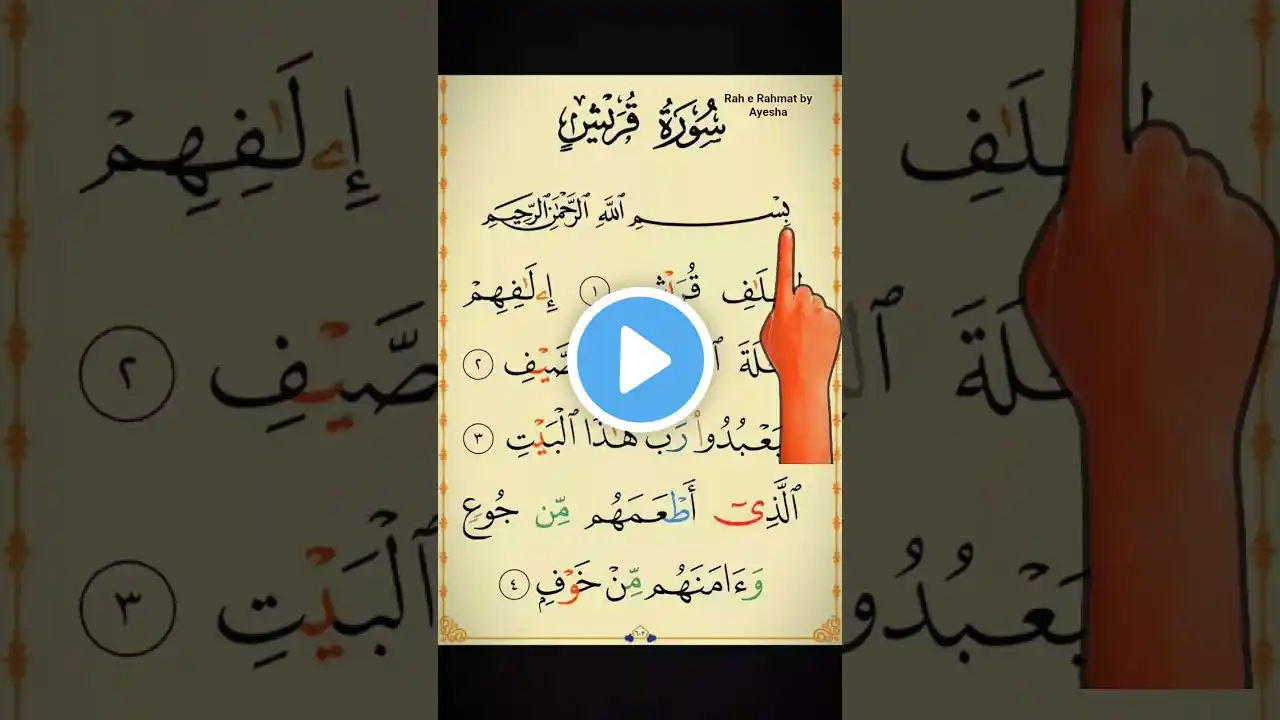 Rah e Rahmat by
Ayesha
سُورَةُ قُرَيْشٍ
بِسْمِ ٱللَّهِ ٱلرَّحْمَٰنِ ٱلرَّحِيمِ
١ إِۦلَٰفِهِمْ
٢
رَبَّ هَٰذَا ٱلْبَيْتِ ٣
ٱلَّذِىٓ أَطْعَمَهُم مِّن جُوعٍ
وَءَامَنَهُم مِّنْ خَوْفٍ ٤
٦٠٢